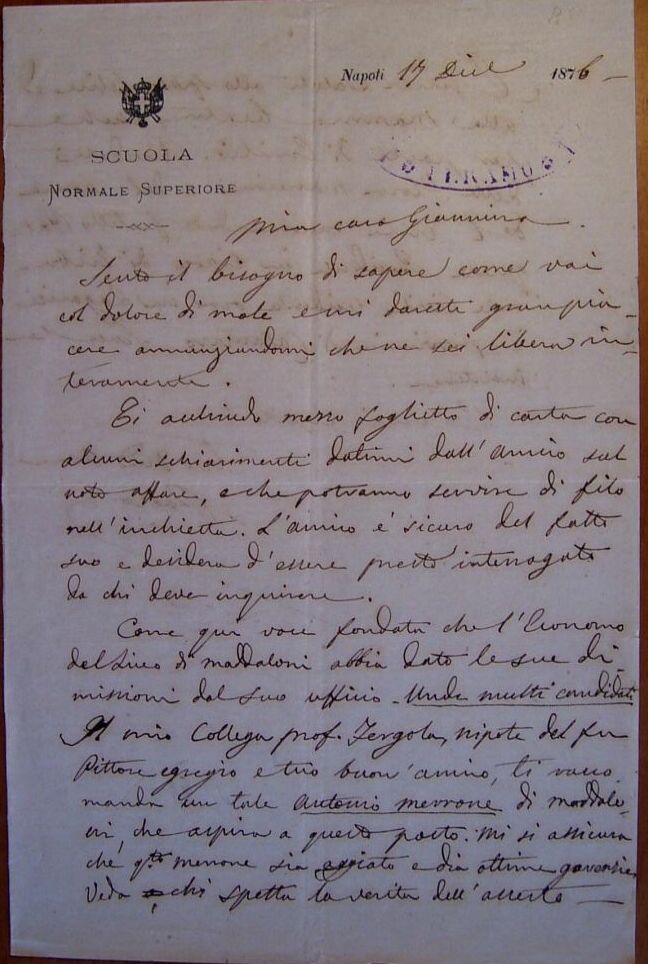 Napoli 17 Dic 1876 –
SCUOLA
NORMALE SUPERIORE
TERAMO
Mia cara Giannina.
Sento il bisogno di sapere come vai
col dolore di mole e mi daresti gran pia-
cere annunziandomi che ne sei libera in-
teramente.
Ti acchiudo mezzo foglietto di carta con
alcuni schiarimenti datimi dall'amico sul
noto affare, e che potranno servire di filo
nell'inchiesta. L'amico è sicuro del fatto
suo e desidera d'essere presto interrogato
da chi deve inquirere.
Corre qui voce fondata che l'Economo
del Liceo di Maddaloni abbia dato le sue di
missioni dal suo ufficio. Unde multi candidati
Il mio Collega prof. Fergola, nipote del fu
Pittore egregio e tuo buon'amico, ti racco
manda un tale Antonio Merrone di Maddalo-
ni, che aspira a questo posto. Mi si assicura
che q.to Merrone sia agiato e dia ottime garenzie
Veda chi spetta la verità dell'asserto —